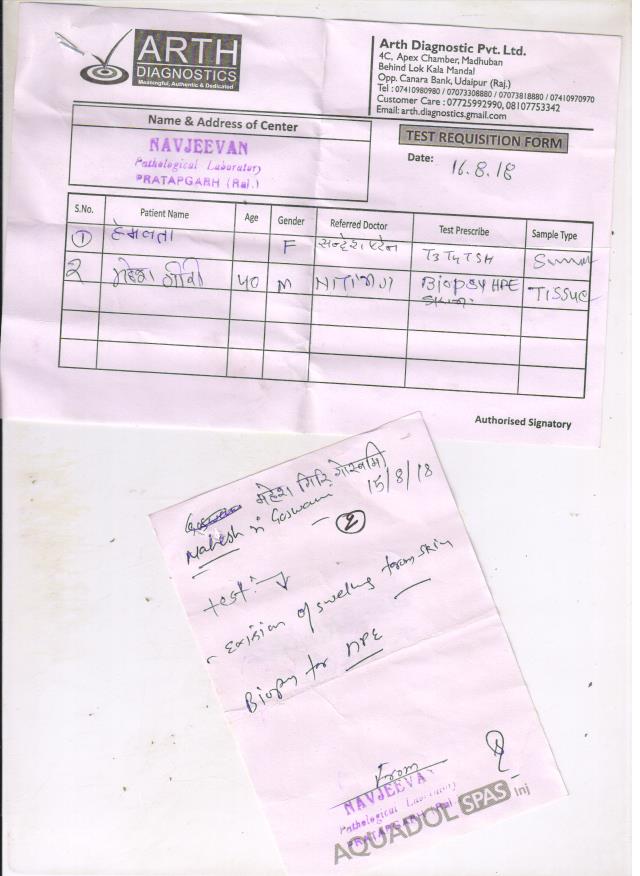 ARTH
DIAGNOSTICS
Meaningful, Authentic & Dedicated
Arth Diagnostic Pvt. Ltd.
4C, Apex Chamber, Madhuban
Behind Lok Kala Mandal
Opp. Canara Bank, Udaipur (Raj.)
Tel : 07410980980 / 07073308880 / 07073818880 / 07410970970
Customer Care : 07725992990, 08107753342
Email: arth.diagnostics.gmail.com
Name & Address of Center
NAVJEEVAN
Pathological Laboratory
PRATAPGARH (Raj.)
TEST REQUISITION FORM
Date: 16.8.18
S.No. Patient Name Age Gender Referred Doctor Test Prescribe Sample Type
1 हेमलता F T3 T4 TSH
2 महेश गीरी 40 M Biopsy HPE TISSUE
Skin
Authorised Signatory
महेश गिरि गोस्वामी 15/8/18
Mahesh Goswami
2
test:
Exision of swelling from skin
Biopsy for HPE
From
NAVJEEVAN
Pathological Laboratory
PRATAPGARH (Raj.)
AQUADOL SPAS Inj